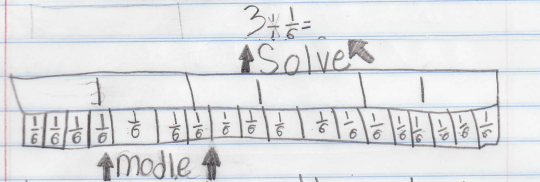 3 ÷ 1/6 =
Solve
1 1 1
1/6 1/6 1/6 1/6 1/6 1/6 1/6 1/6 1/6 1/6 1/6 1/6 1/6 1/6 1/6 1/6 1/6 1/6
modle